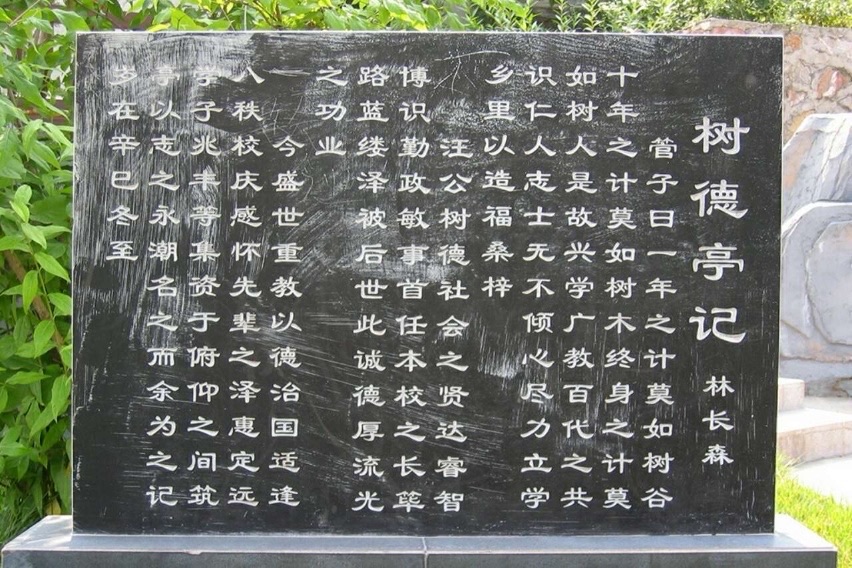 树德亭记 林长森
管子曰一年之计莫如树谷
十年之计莫如树木终身之计莫
如树人是故兴学广教百代之共
识仁人志士无不倾心尽力立学
乡里以造福桑梓
汪公树德社会之贤达睿智
博识勤政敏事首任本校之长筚
路蓝缕泽被后世此诚德厚流光
之功业
今盛世重教以德治国适逢
八秩校庆感怀先辈之泽惠定远
学子兆丰等集资于俯仰之间筑
亭以志之永潮名之而余为之记
岁在辛巳冬至